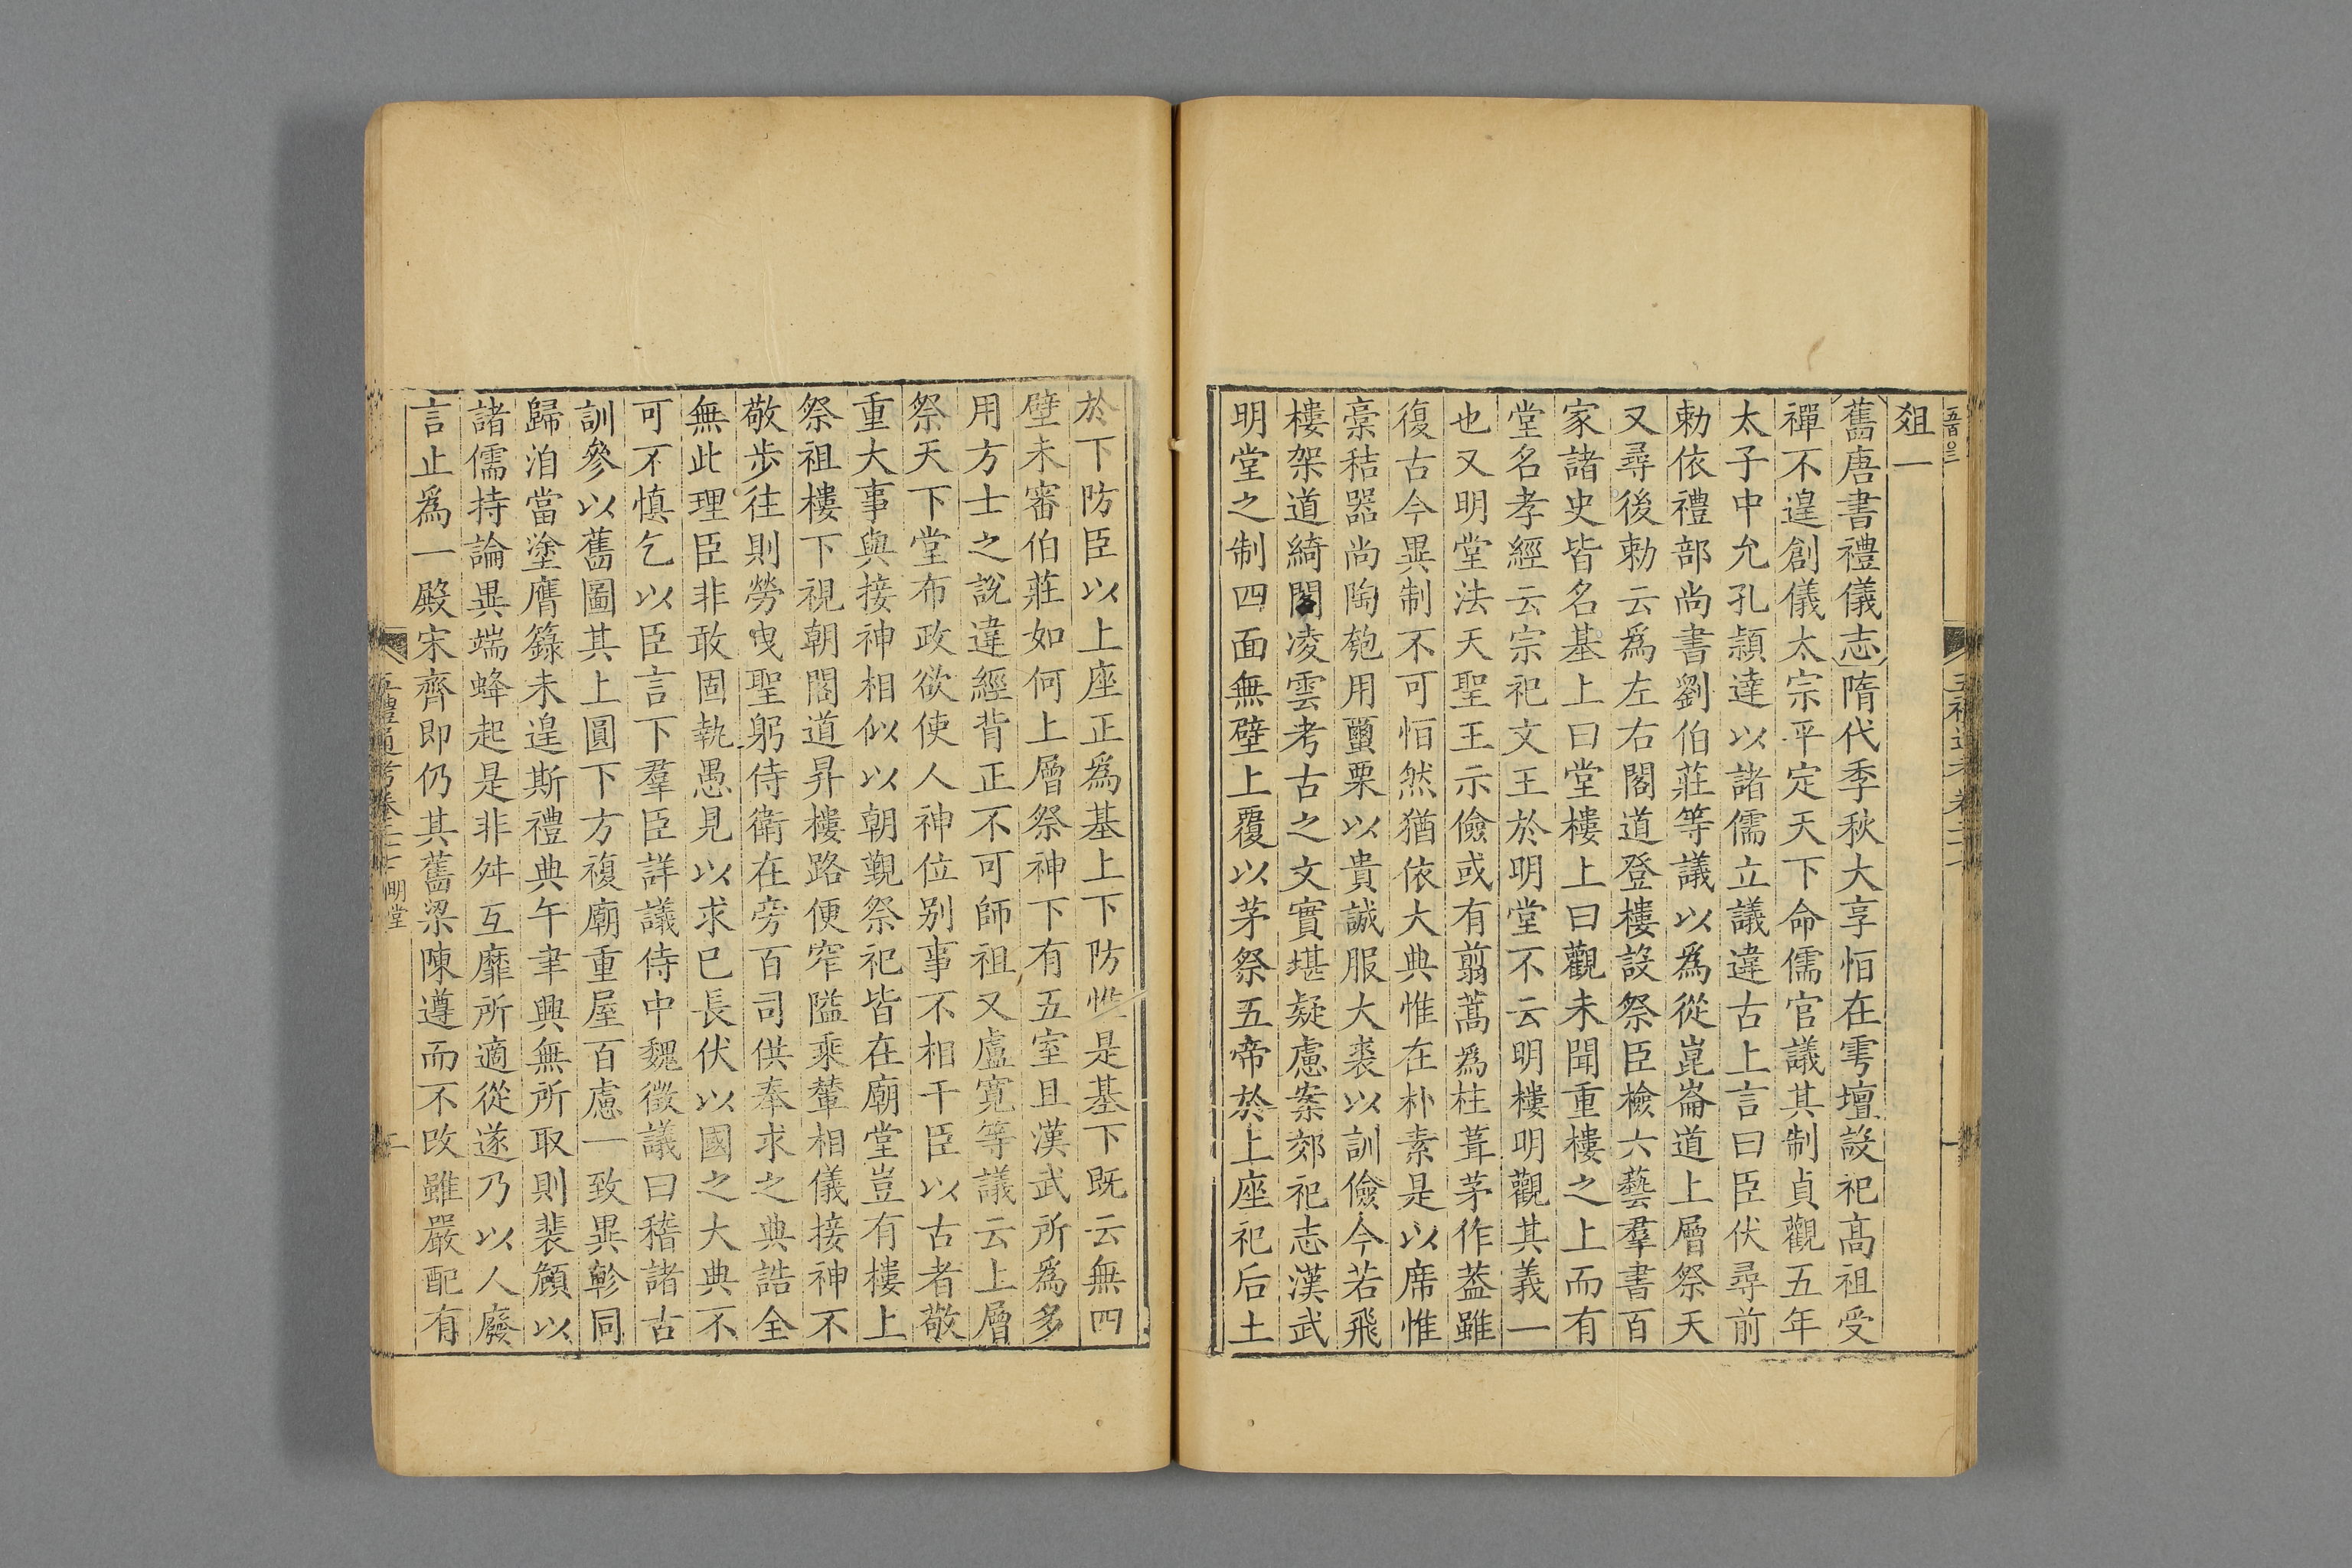 俎一
舊唐書禮儀志隋代季秋大享恒在雩壇設祀高祖受
禪不遑創儀太宗平定天下命儒官議其制貞觀五年
太子中允孔頴達以諸儒立議違古上言曰臣伏尋前
勅依禮部尚書劉伯莊等議以爲從崑崙道上層祭天
又尋後勅云爲左右閣道登樓設祭臣檢六藝羣書百
家諸史皆名基上曰堂樓上曰觀未聞重樓之上而有
堂名孝經云宗祀文王於明堂不云明樓明觀其義一
也又明堂法天聖王示儉或有翦蒿爲柱葺茅作葢雖
復古今異制不可恒然猶依大典惟在朴素是以席惟
藁秸器尚陶匏用蠒栗以貴誠服大裘以訓儉今若飛
樓架道綺閣凌雲考古之文實堪疑慮案郊祀志漢武
明堂之制四面無壁上覆以茅祭五帝於上座祀后土
於下防臣以上座正爲基上下防惟是基下既云無四
壁未審伯莊如何上層祭神下有五室且漢武所爲多
用方士之說違經背正不可師祖又盧寬等議云上層
祭天下堂布政欲使人神位别事不相干臣以古者敬
重大事與接神相似以朝覲祭祀皆在廟堂豈有樓上
祭祖樓下視朝閣道昇樓路便窄隘乘輦相儀接神不
敬步往則勞曳聖躬侍衛在旁百司供奉求之典誥全
無此理臣非敢固執愚見以求已長伏以國之大典不
可不慎乞以臣言下羣臣詳議侍中魏徵議曰稽諸古
訓參以舊圖其上圓下方複廟重屋百慮一致異軫同
歸洎當塗膺籙未遑斯禮典午聿興無所取則裴頠以
諸儒持論異端蜂起是非舛互靡所適從遂乃以人廢
言止爲一殿宋齊即仍其舊梁陳遵而不改雖嚴配有
五禮通考卷二十七 明堂
二